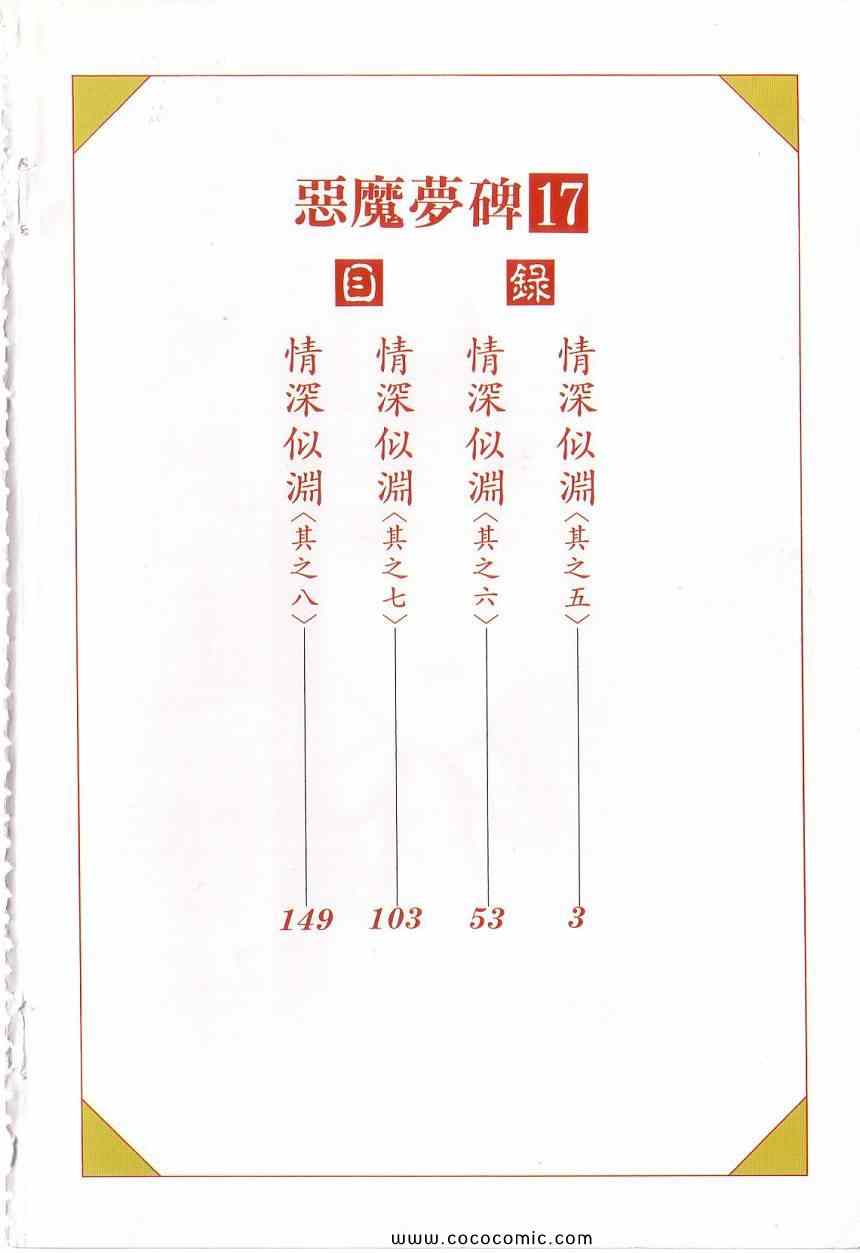 惡魔夢碑17
目錄
情深似淵〈其之五〉3
情深似淵〈其之六〉53
情深似淵〈其之七〉103
情深似淵〈其之八〉149
www.cococomic.com